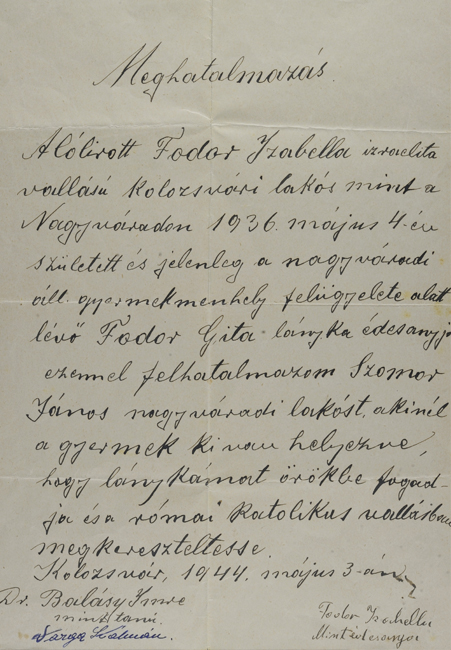 Meghatalmazás.
Alólirott Fodor Izabella izraelita
vallású kolozsvári lakós mint a
Nagyváradon 1936. május 4-én
született és jelenleg a nagyváradi
áll. gyermekmenhely felügyelete alatt
lévő Fodor Gita lányka édesanyja
ezennel felhatalmazom Szomor
János nagyváradi lakóst, akinél
a gyermek ki van helyezve,
hogy lánykámat örökbe fogad-
ja és a római katolikus vallásban
megkereszteltesse.
Kolozsvár, 1944. május 3-án
Dr. Balásy Imre
mint tanu.
Varga Kálmán.
Fodor Izabella
Mint édesanya